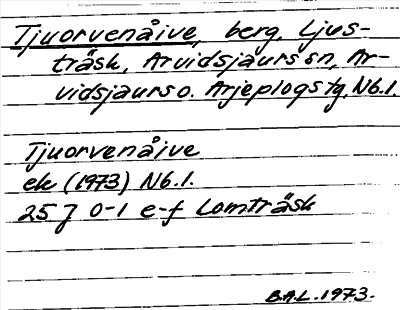 Tjuorvenåive, berg, Ljus-
träsk, Arvidsjaurs sn, Ar-
vidsjaurs o. Arjeplogs tg, Nb.l.
Tjuorvenåive
ek (1973) Nb.l.
25 J 0-1 e-f Lomträsk
B.A.L. 1973.